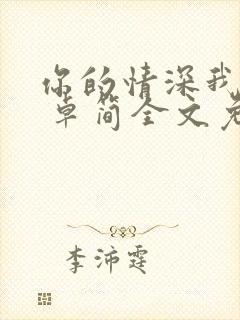 你的情深我
卓简全文免
李沛霆